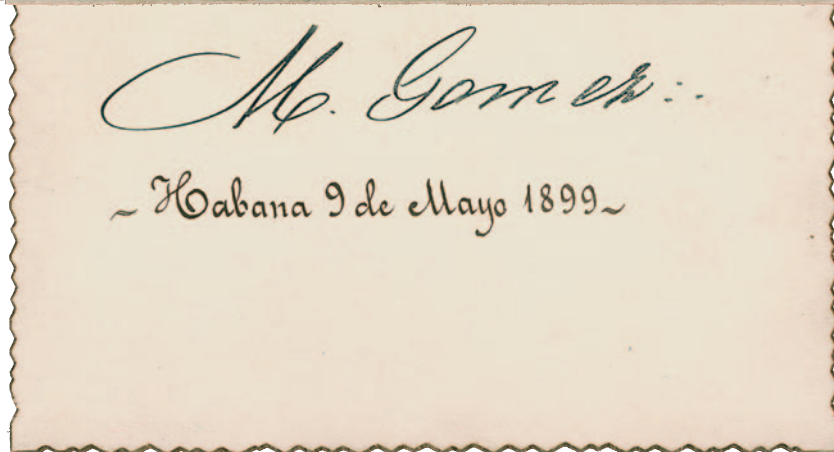 M. Gomez:.
~ Habana 9 de Mayo 1899 ~